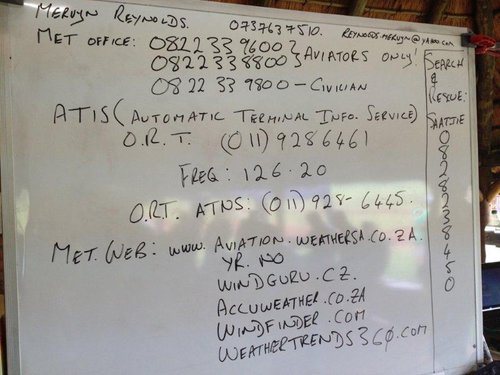 MERVYN REYNOLDS. 0737637510. REYNOLDS.MERVYN@YAHOO.COM
MET OFFICE: 082233 9600 } AVIATORS ONLY!
082233 8800 }
082233 9800 - CIVILIAN
ATIS (AUTOMATIC TERMINAL INFO. SERVICE)
O.R.T. (011) 9286461
FREQ: 126.20
O.R.T. ATNS: (011) 928-6445.
MET. WEB: WWW.AVIATION.WEATHERSA.CO.ZA.
YR.NO
WINDGURU.CZ.
ACCUWEATHER.CO.ZA
WINDFINDER.COM
WEATHERTRENDS360.COM
SEARCH
&
RESCUE:
SAATJIE
0
8
2
8
2
3
8
4
5
0